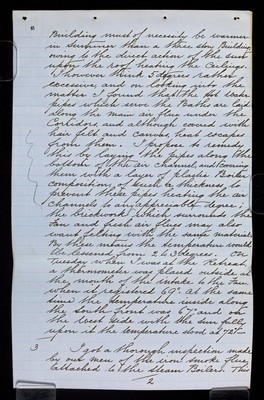 Building must of necessity be warmer
in summer than a three story Building,
owing to the direct action of the sun
upon the roof heating the Ceilings.
I however think 5 degrees rather
excessive, and on looking into the
matter I found that the hot water
pipes which serve the Baths are laid
along the main air flue under the
Corridors, and although covered with
hair felt and canvas heat escapes
from them. I propose to remedy
this by laying the pipes along the
bottom of the channel, and covering
them with a layer of plastic Boiler
composition, of such a thickness, as
prevent these pipes heating the air
channels to an appreciable degree,
the brickwork which surrounds the
Fan and fresh air flues may also
want felting with the same material.
By these means the temperature would
be lessened from 2 to 3 degrees. On
Tuesday when I was at the Retreat
a thermometer was placed outside at
the mouth of the intake to the Fan
when it registered 69° At the same
time the temperature inside along
the South front was 67° and on
the West side with the sun fully
upon it the temperature stood at 72°
3 I got a thorough inspection made
by our men of the iron smoke flue,
attached to the Steam Boiler. This
2